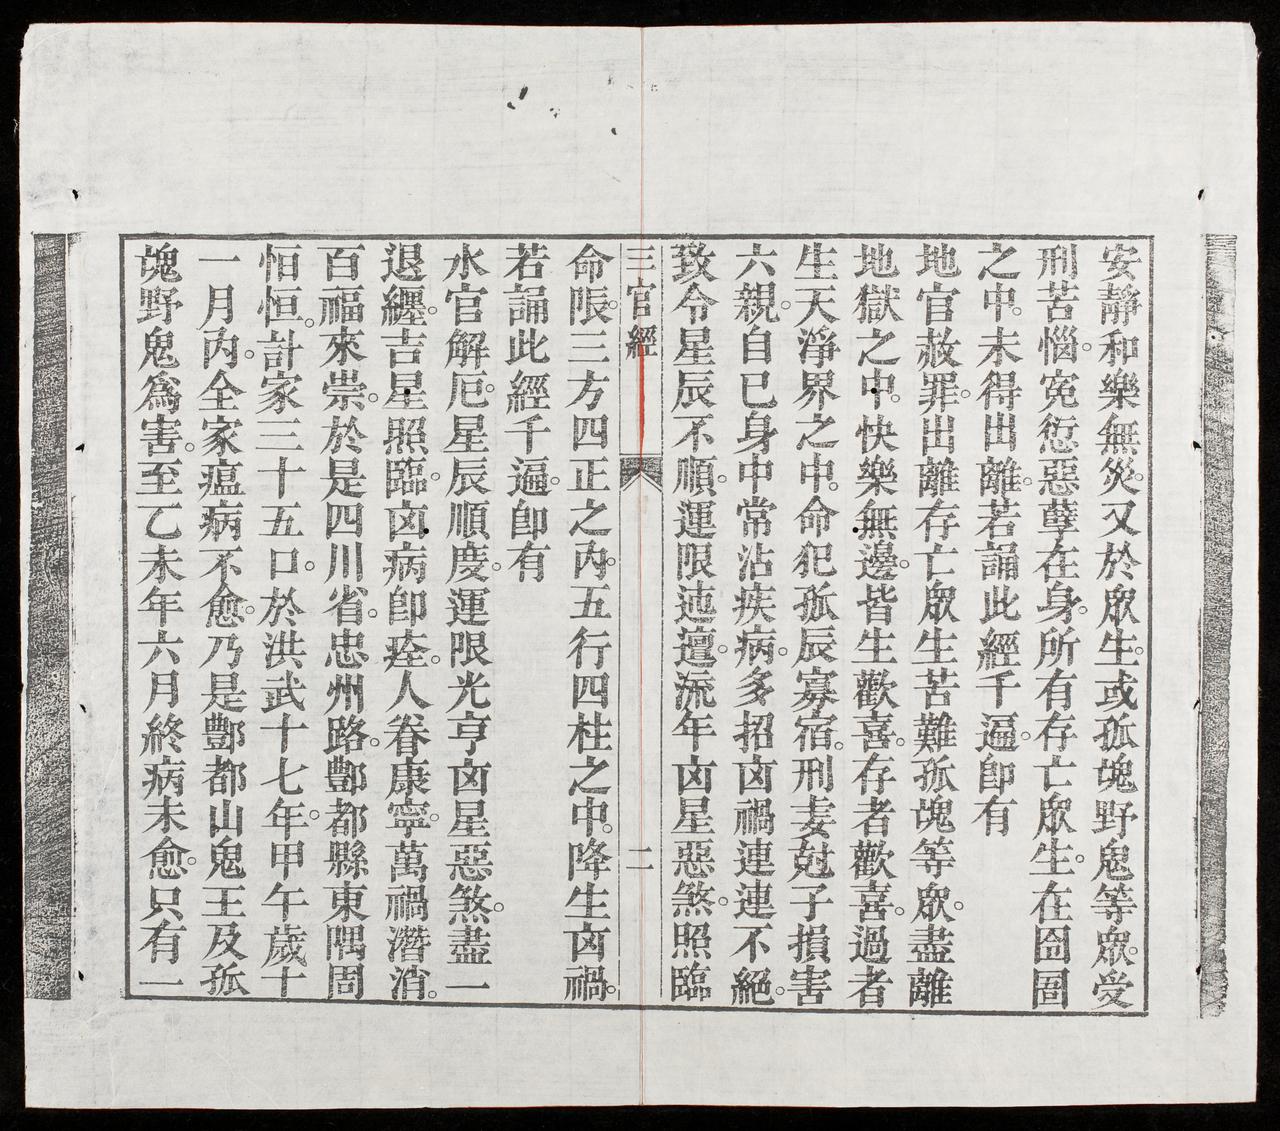 安靜和樂無災。又於眾生。或孤魂野鬼等眾。受
刑苦惱。冤愆惡孽在身。所有存亡眾生。在囹圄
之中。未得出離。若誦此經千遍。即有
地官赦罪。出離存亡眾生苦難。孤魂等眾。盡離
地獄之中。快樂無邊。皆生歡喜。存者歡喜。過者
生天淨界之中。命犯孤辰寡宿。刑妻尅子。損害
六親。自己身中。常沾疾病。多招凶禍。連連不絕。
致令星辰不順。運限迍邅。流年凶星惡煞。照臨
三官經 二
命限。三方四正之內。五行四柱之中。降生凶禍。
若誦此經千遍。即有
水官解厄。星辰順度。運限光亨。凶星惡煞。盡一
退纏。吉星照臨。凶病即痊。人眷康寧。萬禍潛消。
百福來崇。於是四川省。忠州路。酆都縣東隅周
恒恒。計家三十五口。於洪武十七年。甲午歲十
一月內。全家瘟病不愈。乃是酆都山鬼王及孤
魂野鬼為害。至乙未年六月終。病未愈。只有一